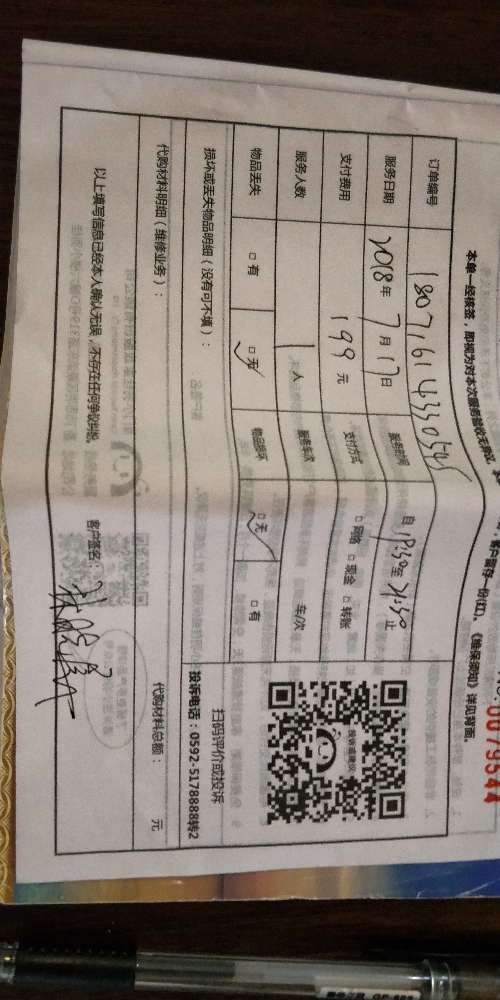 本单一经核签，即视为对本次服务验收无异议，
客户留存一份(红)。《维保须知》详见背面。
0079544
订单编号 180716143305
服务日期 2018年7月17日 服务时间 自 19:30至21:30止
支付费用 199元 支付方式 □网络 □现金 □转账
服务人数 1人 服务车次 车/次
物品丢失 □有 □无 物品损坏 □无 □有
损坏或丢失物品明细（没有可不填）：
扫码评价或投诉
投诉电话：0592-5178888转2
代购材料明细（维修业务）： 代购材料总额： 元
以上填写信息已经本人确认无误，不存在任何争议纠纷 客户签名：
投诉或建议